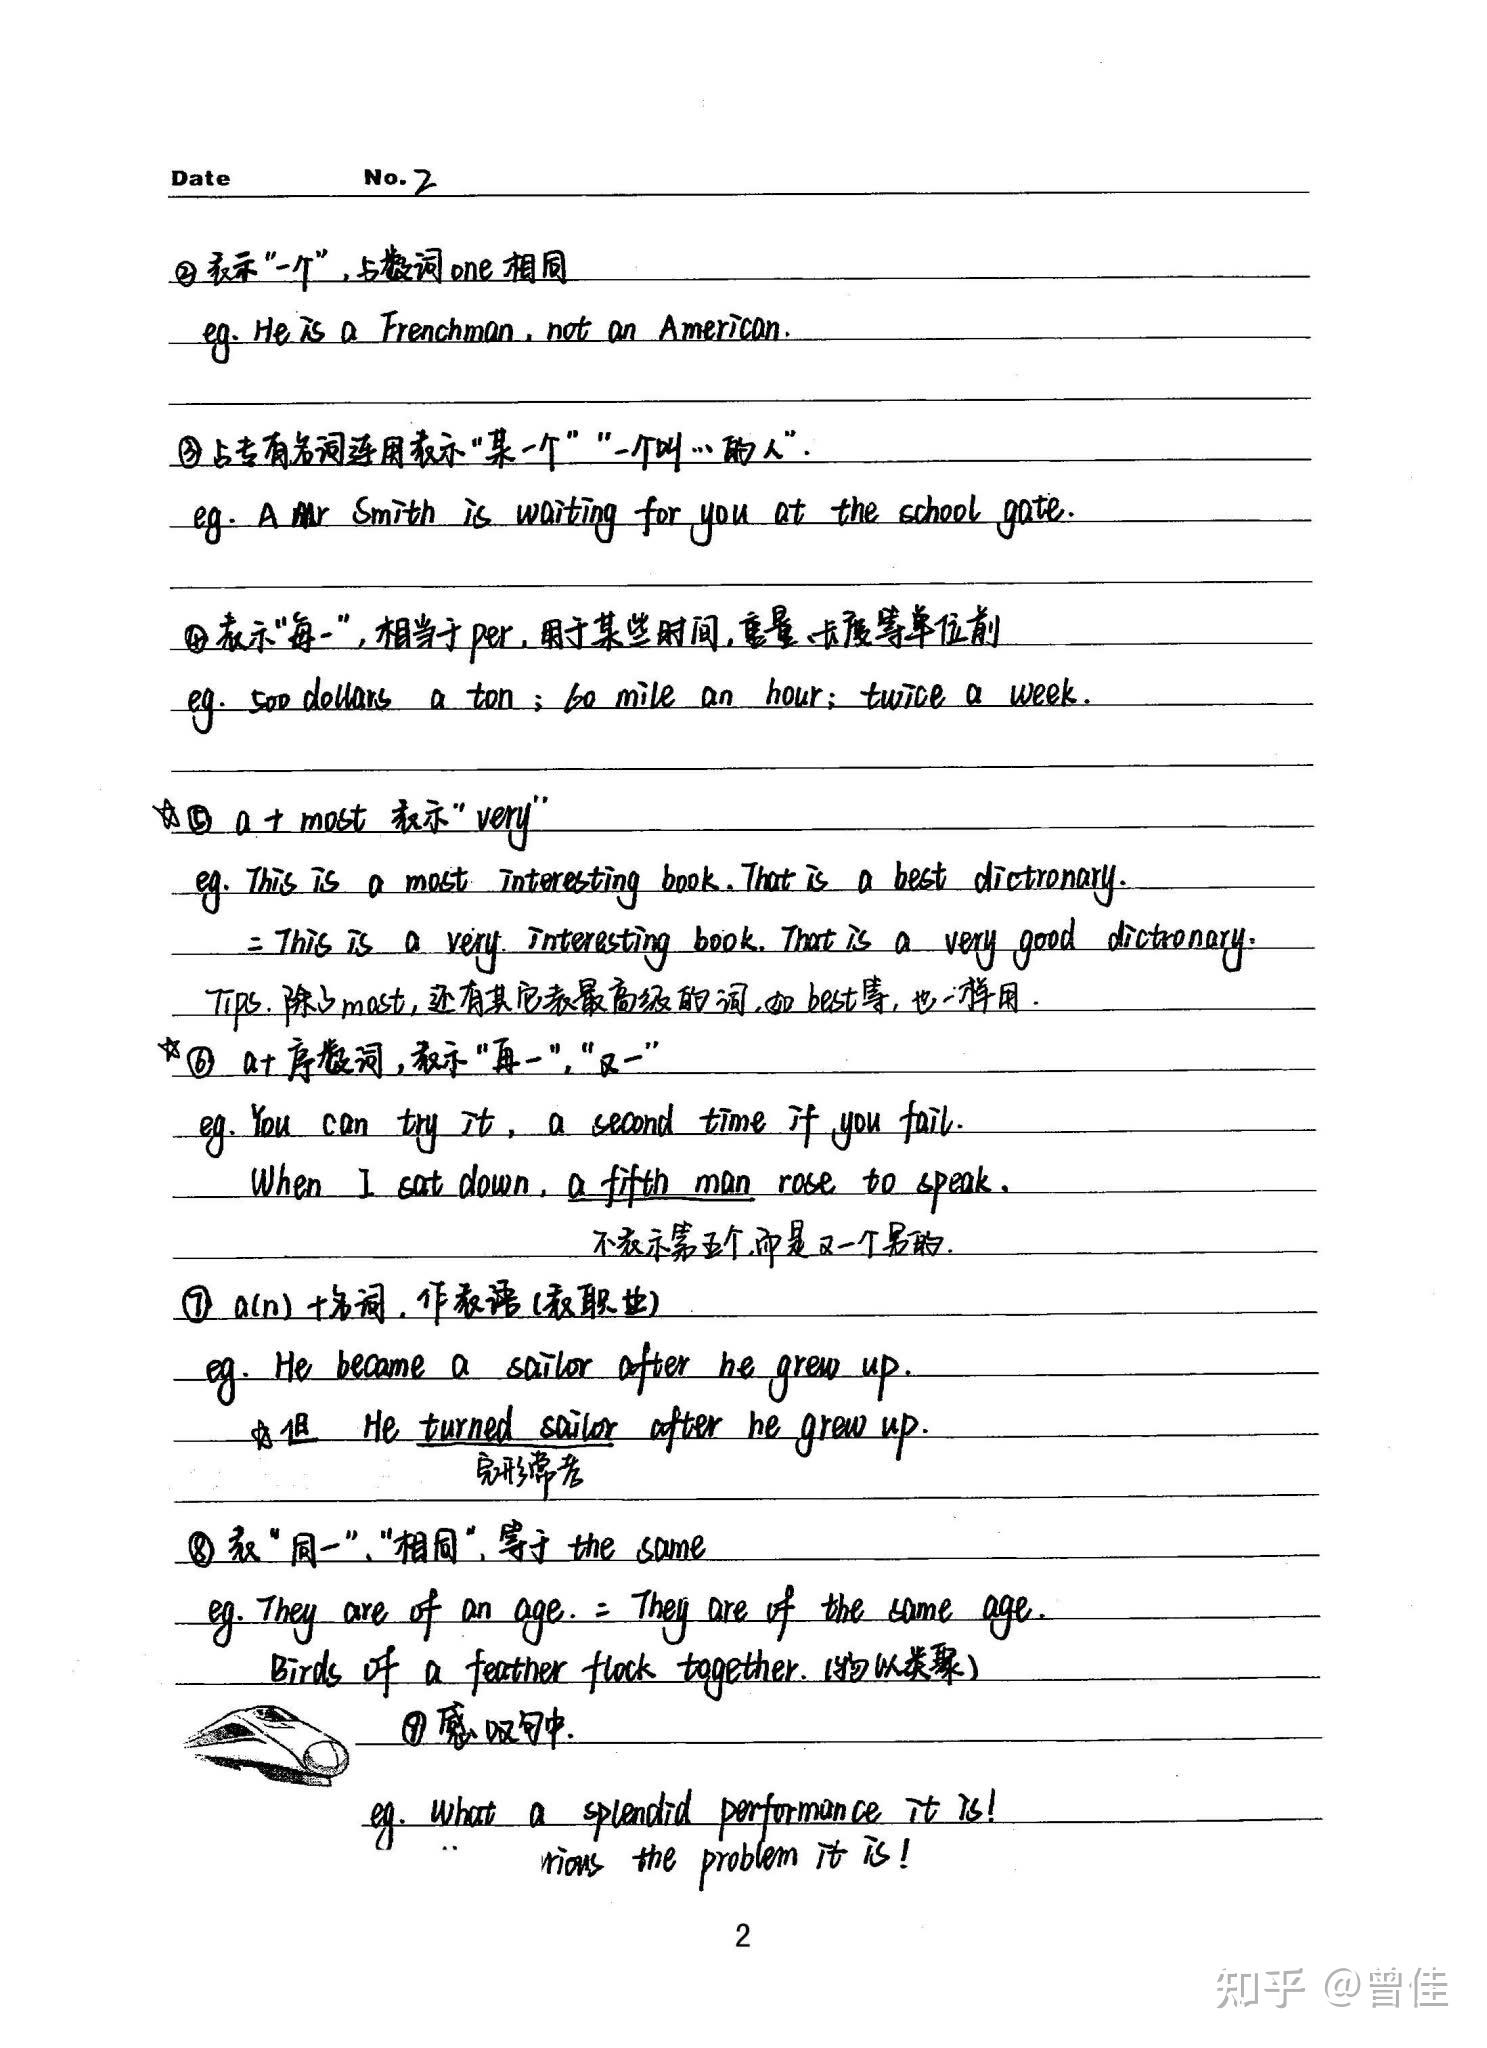 Date No. 2
② 表示"一个",与数词 one 相同
eg. He is a Frenchman, not an American.
③ 与专有名词连用表示"某一个" "一个叫…的人".
eg. A Mr Smith is waiting for you at the school gate.
④ 表示"每一",相当于 per,用于某些时间,重量、长度等单位前
eg. 500 dollars a ton; 60 mile an hour; twice a week.
☆⑤ a + most 表示"very"
eg. This is a most interesting book. That is a best dictronary.
= This is a very interesting book. That is a very good dictronary.
Tips. 除了 most, 还有其它表最高级的词,如 best 等,也一样用.
☆⑥ a+ 序数词,表示"再一","又一"
eg. You can try it, a second time if you fail.
When I sat down, a fifth man rose to speak.
不表示第五个,而是又一个男的.
⑦ a(n) +名词,作表语(表职业)
eg. He became a sailor after he grew up.
☆但 He turned sailor after he grew up.
完形常考
⑧ 表"同一"、"相同",等于 the same
eg. They are of an age. = They are of the same age.
Birds of a feather flock together. (物以类聚)
⑨ 感叹句中.
eg. What a splendid performance it is!
the problem it is!
2
知乎 @曾佳